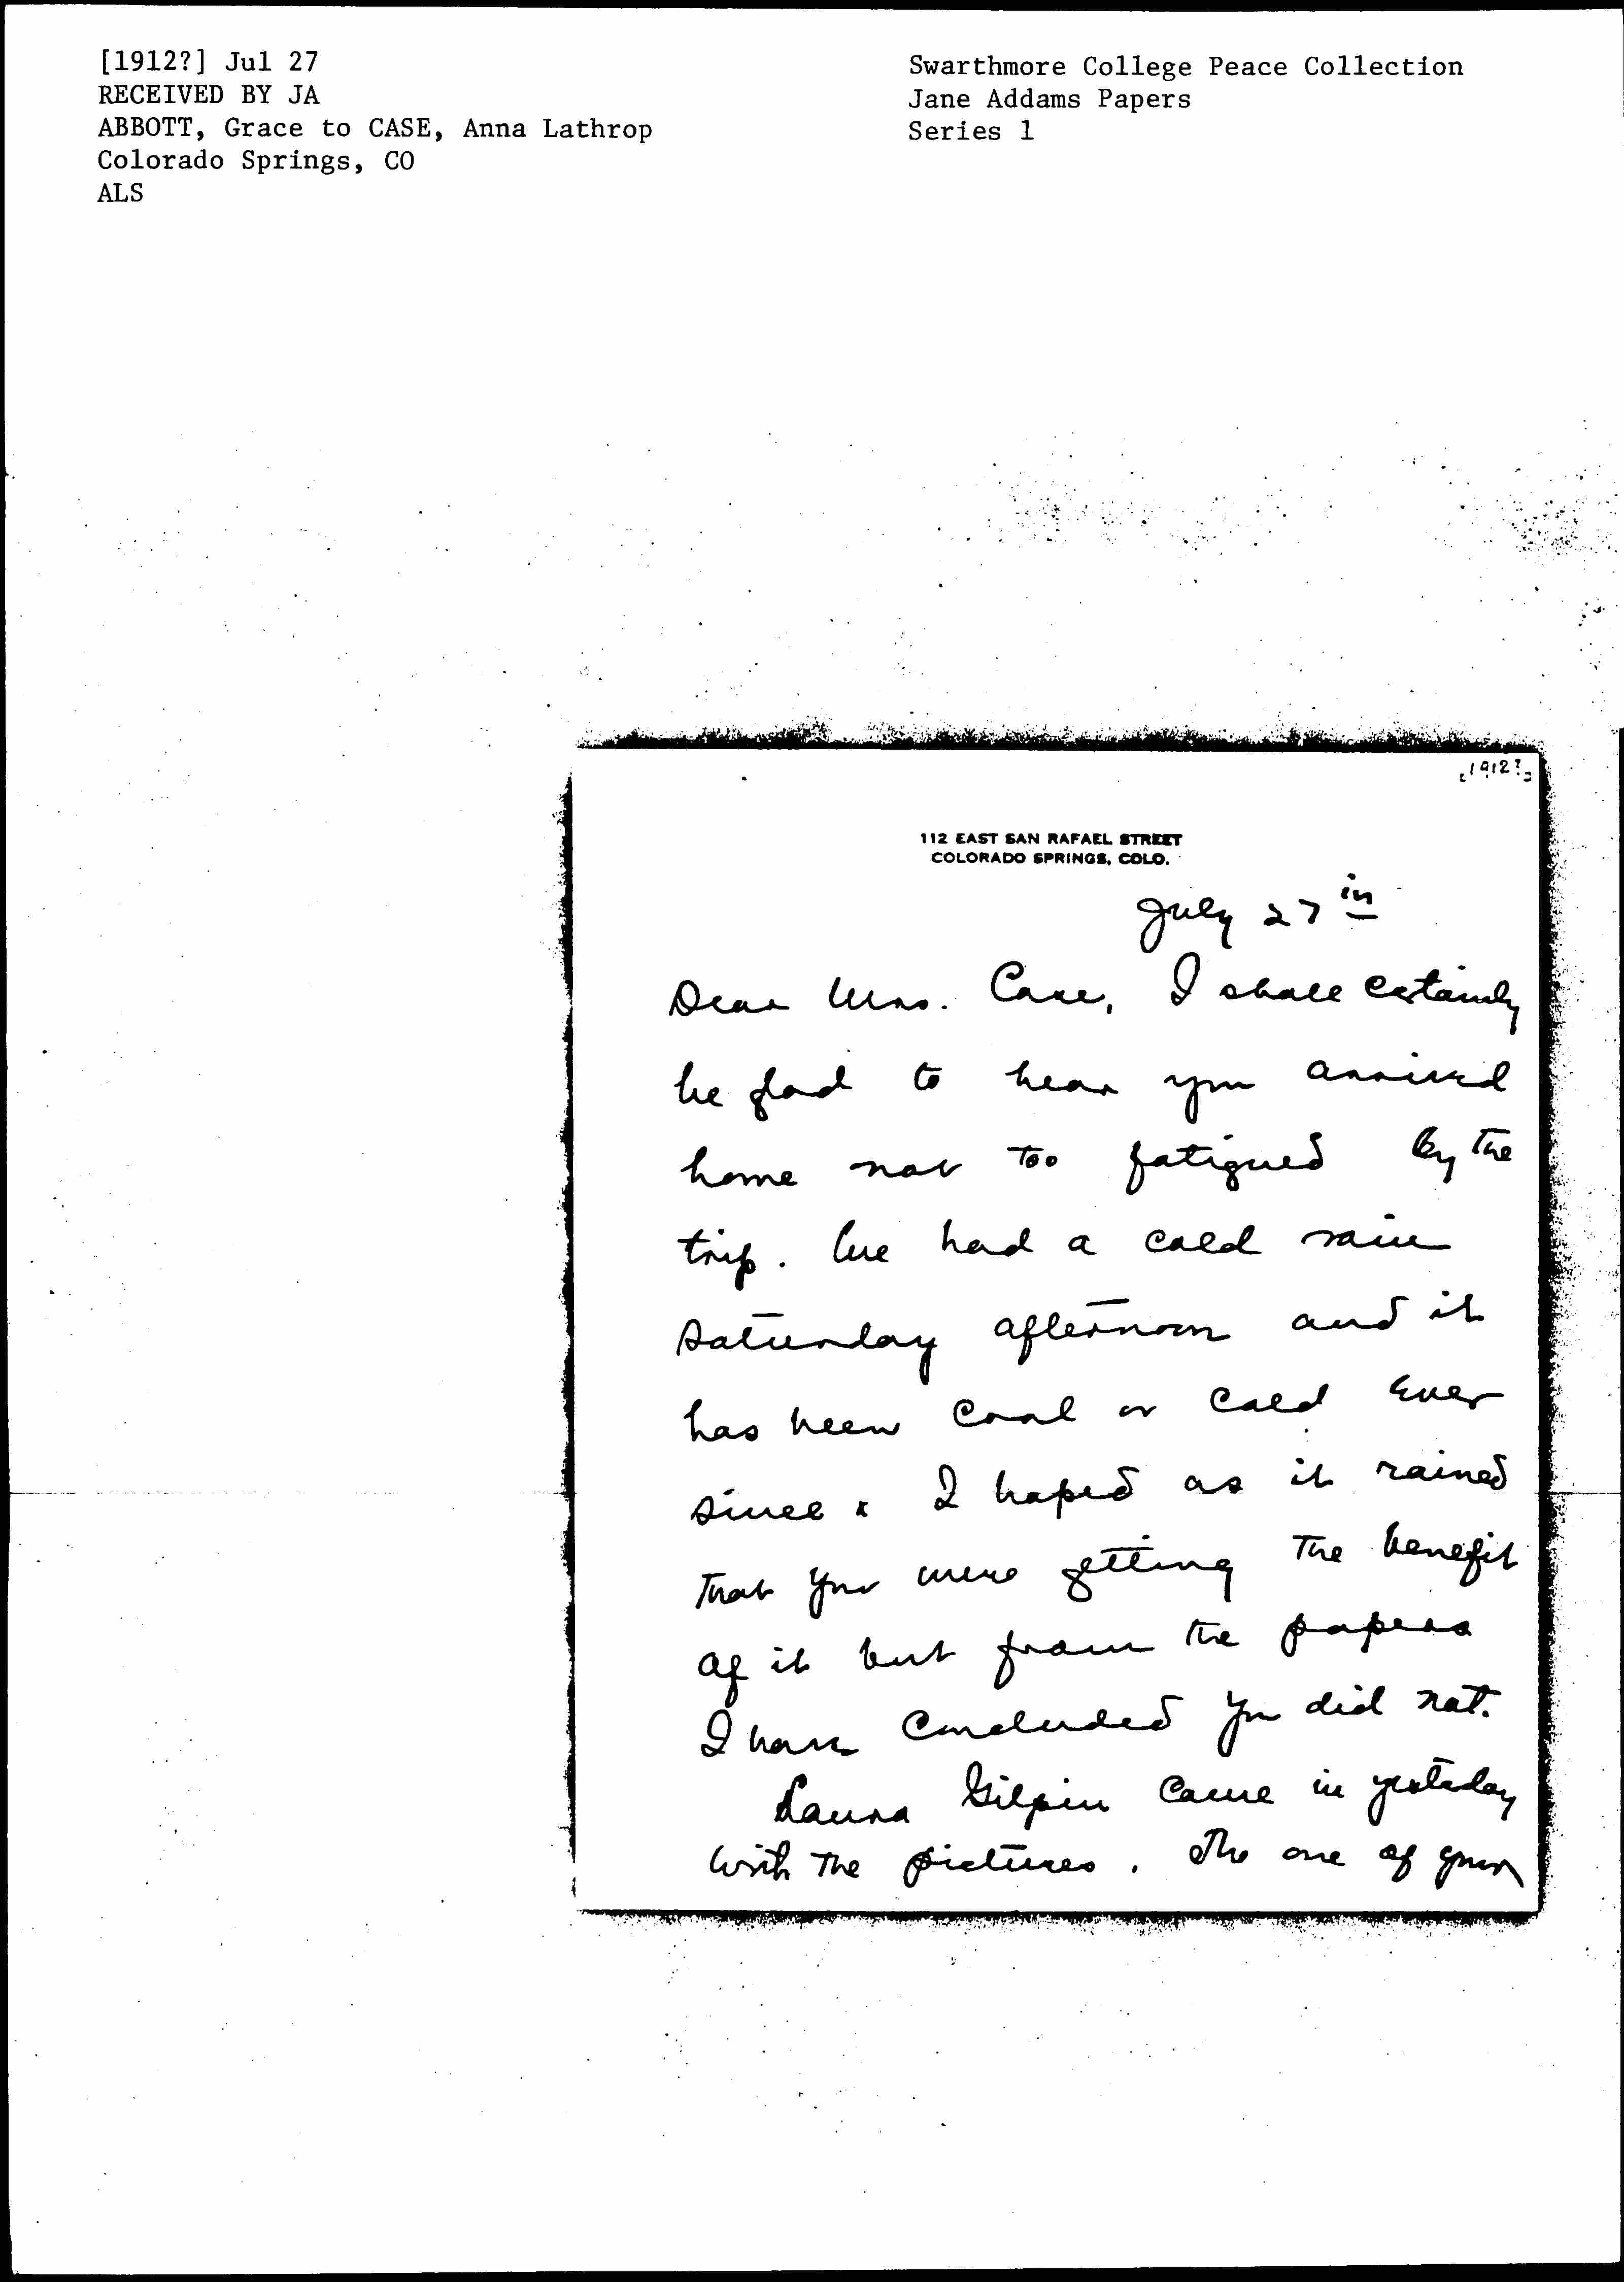 [1912?] Jul 27
RECEIVED BY JA
ABBOTT, Grace to CASE, Anna Lathrop
Colorado Springs, CO
ALS
Swarthmore College Peace Collection
Jane Addams Papers
Series 1
[1912?]
112 EAST SAN RAFAEL STREET
COLORADO SPRINGS, COLO.
July 27th
Dear Mrs. Case, I shall certainly
be glad to hear you arrived
home not too fatigued by the
trip. We had a cold rain
Saturday afternoon and it
has been cool or cold ever
since & I hoped as it rained
that you were getting the benefit
of it but from the papers
I have concluded you did not.
Laura Gilpin came in yesterday
with the pictures. The one of your